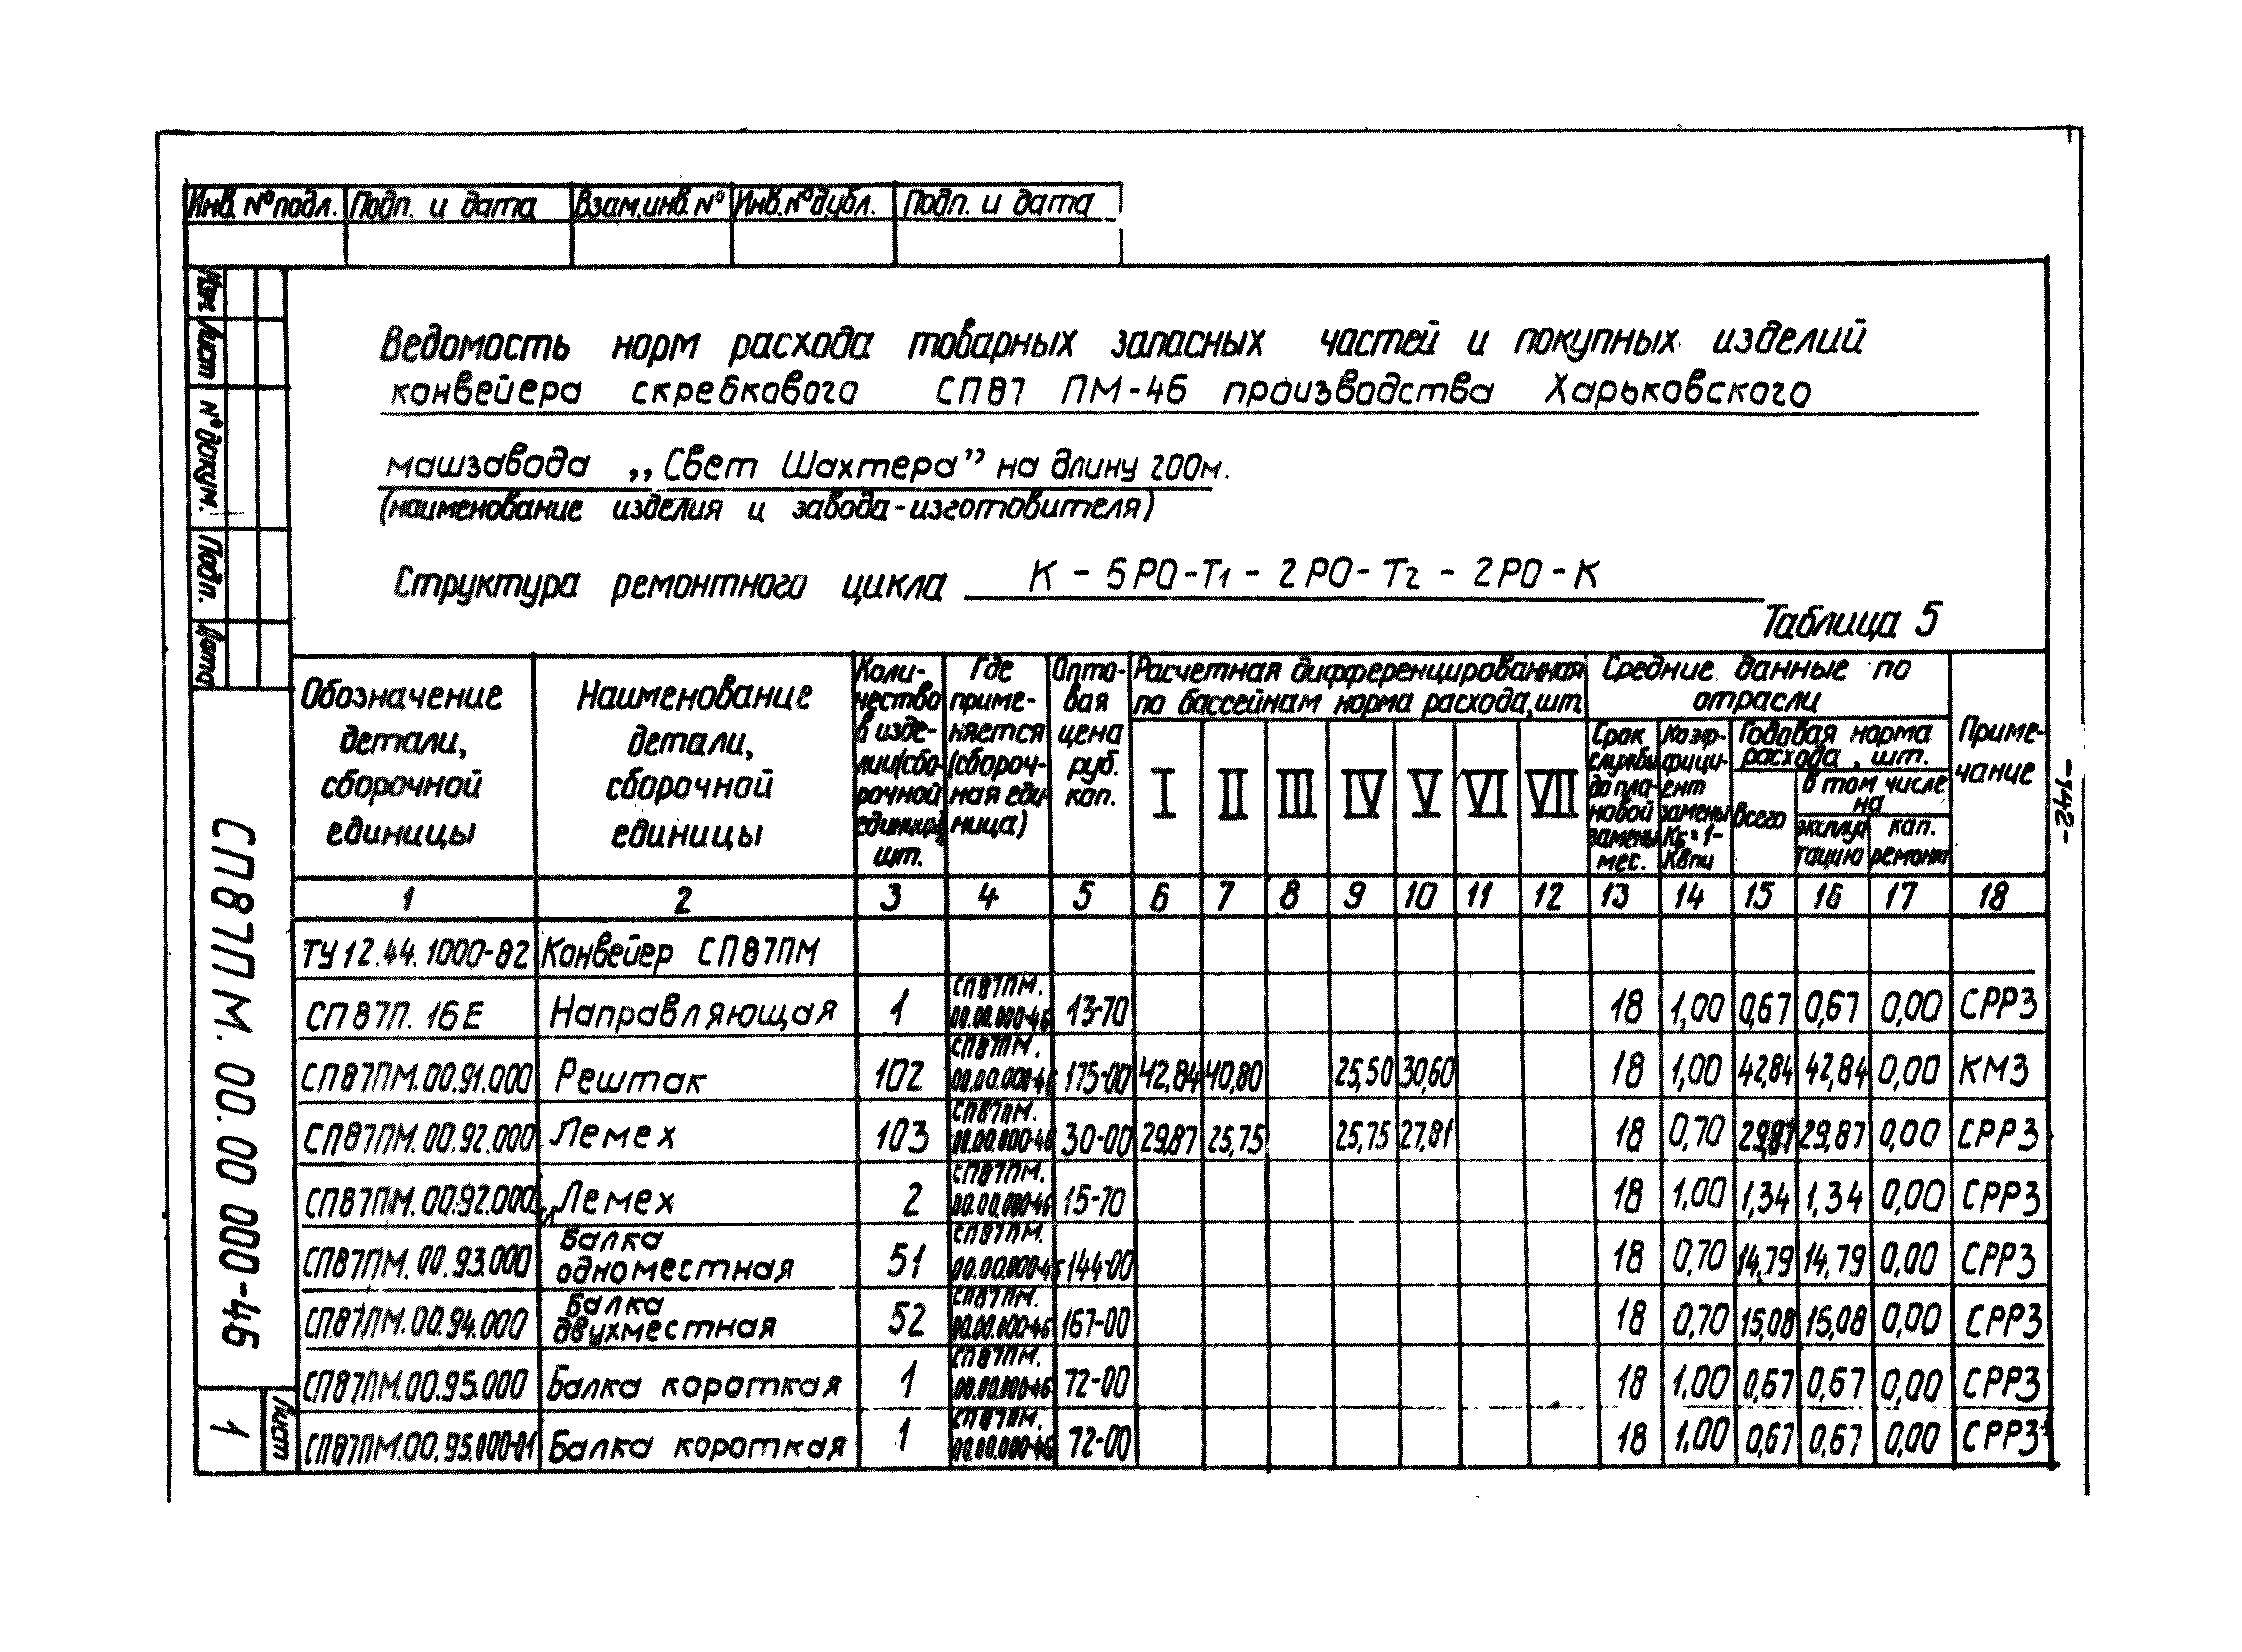 Инв. № подл. Подп. и дата Взам.инв. № Инв. № дубл. Подп. и дата
Изм. Лист № докум. Подп. Дата
Ведомость норм расхода товарных запасных частей и покупных изделий
конвейера скребкового СП87 ПМ-46 производства Харьковского
машзавода „Свет Шахтера” на длину 200м.
(наименование изделия и завода-изготовителя)
Структура ремонтного цикла К - 5РО-Т1 - 2РО- Т2 - 2РО - К
Таблица 5
Обозначение детали, сборочной единицы
Наименование детали, сборочной единицы
Количество в изделии(сборочной единице), шт.
Где применяется (сборочная единица)
Оптовая цена руб. коп.
Расчетная дифференцированная по бассейнам норма расхода, шт.
I II III IV V VI VII
Средние данные по отрасли
Срок службы до плановой замены мес.
Коэффициент замены Кз = 1-Квпи
Годовая норма расхода, шт.
Всего
в том числе на
эксплуатацию
кап. ремонт
Примечание
1 2 3 4 5 6 7 8 9 10 11 12 13 14 15 16 17 18
ТУ 12.44.1000-82 Конвейер СП87ПМ
СП87П.16Е Направляющая 1 СП87ПМ.00.00.000-46 13-70 18 1,00 0,67 0,67 0,00 СРРЗ
СП87ПМ.00.91.000 Рештак 102 СП87ПМ.00.00.000-46 175-00 42,84 40,80 25,50 30,60 18 1,00 42,84 42,84 0,00 КМЗ
СП87ПМ.00.92.000 Лемех 103 СП87ПМ.00.00.000-46 30-00 29,87 25,75 25,75 27,81 18 0,70 29,87 29,87 0,00 СРРЗ
СП87ПМ.00.92.000 Лемех 2 СП87ПМ.00.00.000-46 15-70 18 1,00 1,34 1,34 0,00 СРРЗ
СП87ПМ.00.93.000 Балка одноместная 51 СП87ПМ.00.00.000-46 144-00 18 0,70 14,79 14,79 0,00 СРРЗ
СП87ПМ.00.94.000 Балка двухместная 52 СП87ПМ.00.00.000-46 167-00 18 0,70 15,08 15,08 0,00 СРРЗ
СП87ПМ.00.95.000 Балка короткая 1 СП87ПМ.00.00.000-46 72-00 18 1,00 0,67 0,67 0,00 СРРЗ
СП87ПМ.00.95.000-01 Балка короткая 1 СП87ПМ.00.00.000-46 72-00 18 1,00 0,67 0,67 0,00 СРРЗ
СП87ПМ.00.00 000-46
Лист 1
-142-